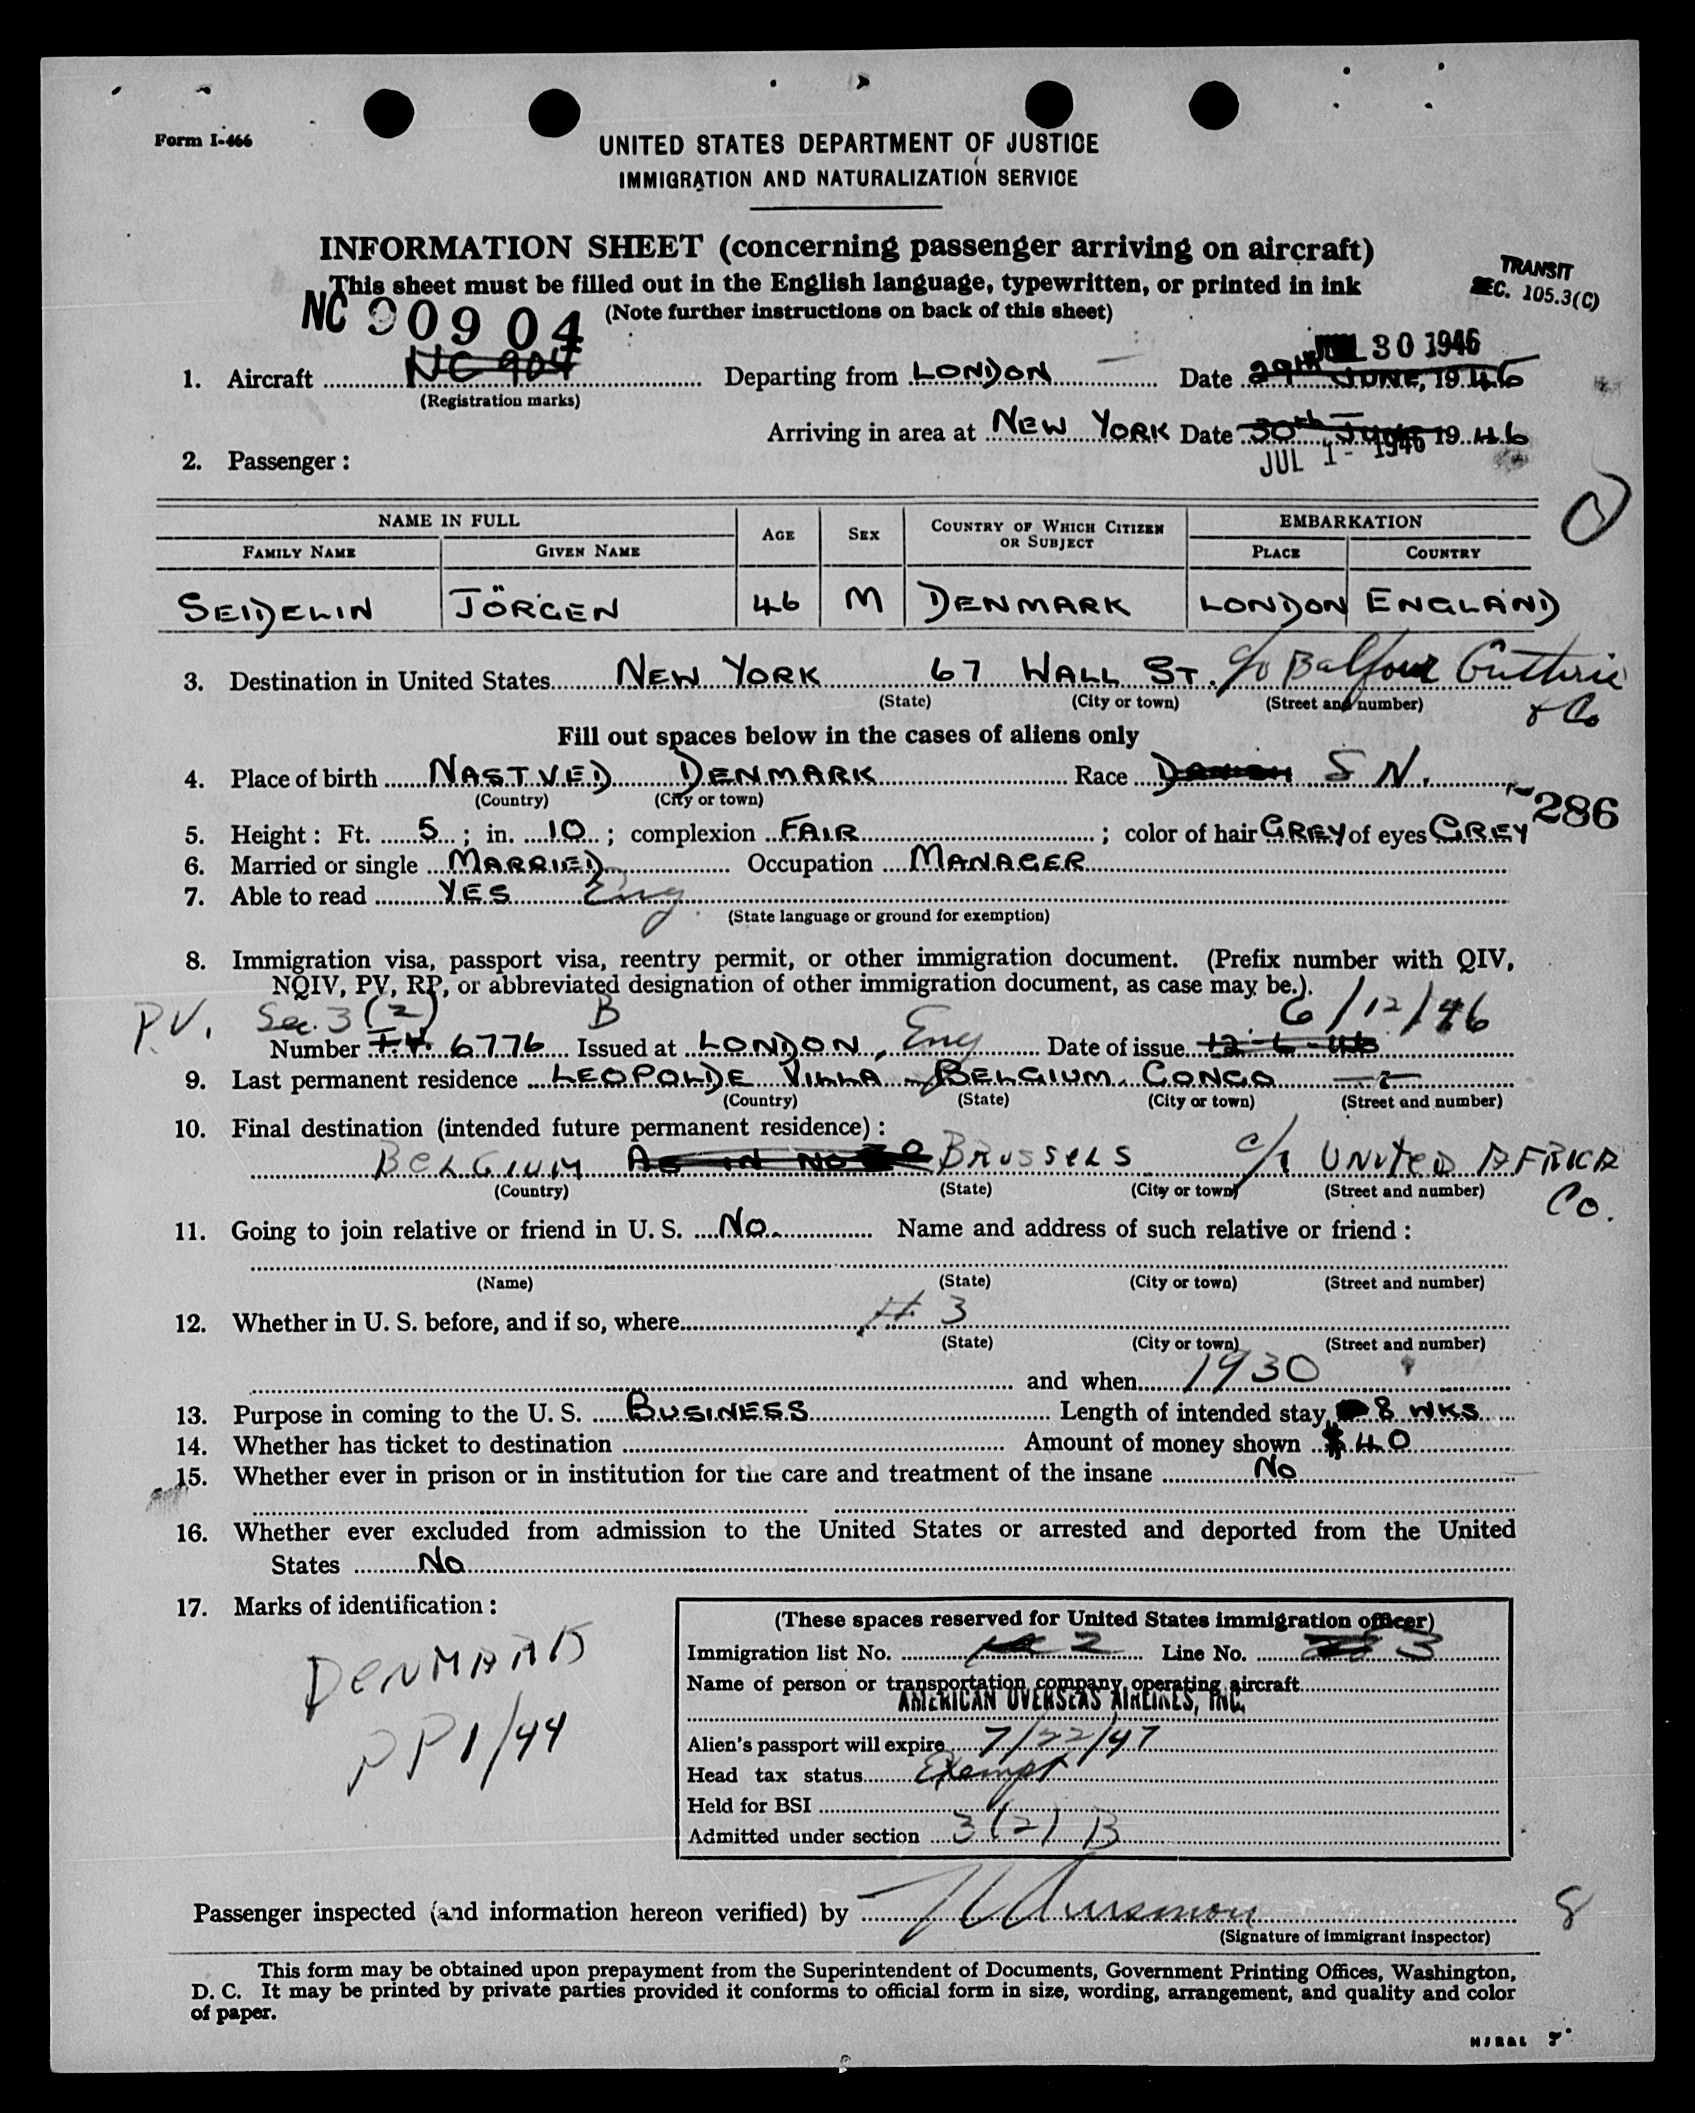 Form I-466
UNITED STATES DEPARTMENT OF JUSTICE
IMMIGRATION AND NATURALIZATION SERVICE
INFORMATION SHEET (concerning passenger arriving on aircraft)
TRANSIT
SEC. 105.3(C)
This sheet must be filled out in the English language, typewritten, or printed in ink
NC 90904 (Note further instructions on back of this sheet)
30 1946
1. Aircraft NC 904 Departing from LONDON Date 29th JUNE, 1946
(Registration marks)
Arriving in area at NEW YORK Date 30th JUNE 1946
JUL 1 - 1946
2. Passenger:
NAME IN FULL AGE SEX COUNTRY OF WHICH CITIZEN OR SUBJECT EMBARKATION
FAMILY NAME GIVEN NAME PLACE COUNTRY
SEIDELIN JÖRGEN 46 M DENMARK LONDON ENGLAND
3. Destination in United States NEW YORK 67 WALL ST. c/o Balfour Guthrie
(State) (City or town) (Street and number) & Co
Fill out spaces below in the cases of aliens only
4. Place of birth NASTVED DENMARK Race DANISH S N.
(Country) (City or town)
286
5. Height: Ft. 5; in. 10; complexion FAIR; color of hair GREY of eyes GREY
6. Married or single MARRIED Occupation MANAGER
7. Able to read YES Eng.
(State language or ground for exemption)
8. Immigration visa, passport visa, reentry permit, or other immigration document. (Prefix number with QIV,
NQIV, PV, RP, or abbreviated designation of other immigration document, as case may be.).
P.V. Sec. 3 (2) B 6/12/46
Number T.V. 6776 Issued at LONDON, Eng Date of issue 12-6-46
9. Last permanent residence LEOPOLDE VILLA - BELGIUM CONGO
(Country) (State) (City or town) (Street and number)
10. Final destination (intended future permanent residence):
BELGIUM AS IN NO BRUSSELS c/o UNITED AFRICA
(Country) (State) (City or town) (Street and number) Co.
11. Going to join relative or friend in U. S. No. Name and address of such relative or friend:
(Name) (State) (City or town) (Street and number)
12. Whether in U. S. before, and if so, where # 3
(State) (City or town) (Street and number)
and when 1930
13. Purpose in coming to the U. S. BUSINESS Length of intended stay 8 WKS
14. Whether has ticket to destination Amount of money shown $40
15. Whether ever in prison or in institution for the care and treatment of the insane No
16. Whether ever excluded from admission to the United States or arrested and deported from the United
States No
17. Marks of identification:
DENMARK
PP1/44
(These spaces reserved for United States immigration officer)
Immigration list No. 2 Line No. 3
Name of person or transportation company operating aircraft
AMERICAN OVERSEAS AIRLINES, INC.
Alien's passport will expire 7/22/47
Head tax status Exempt
Held for BSI
Admitted under section 3(2) B
Passenger inspected (and information hereon verified) by
8
(Signature of immigrant inspector)
This form may be obtained upon prepayment from the Superintendent of Documents, Government Printing Offices, Washington,
D. C. It may be printed by private parties provided it conforms to official form in size, wording, arrangement, and quality and color
of paper.